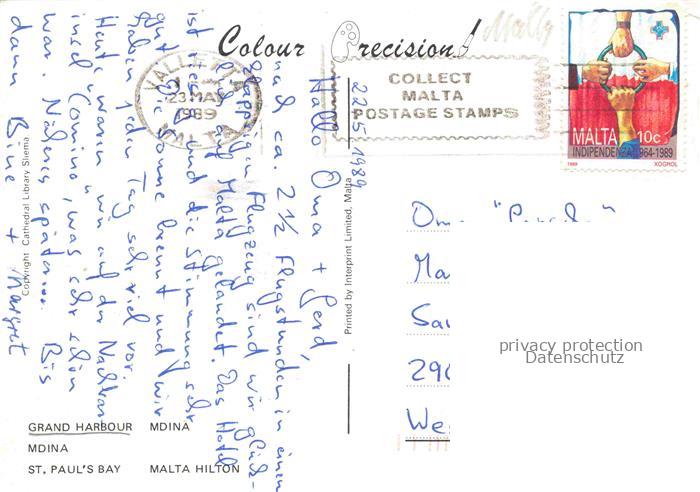 Malta
Colour Precision
VALLETTA
23 MAY
1989
MALTA
COLLECT
MALTA
POSTAGE STAMPS
MALTA 10c
INDIPENDENZA 1964-1989
1989 XOGHOL
22.5.1989
Hallo Oma + Gerd,
nach ca. 2 1/2 Flugstunden in einem
Flugzeug sind wir glück-
lich auf Malta gelandet. Das Hotel
ist und die Stimmung sehr
gut. Die Sonne brennt und wir
haben jeden Tag sehr viel vor.
Heute waren wir auf der Nachbar-
insel "Comino", was sehr schön
war. Näheres später. Bis
dann Bine + Margret
Copyright Cathedral Library Sliema
Printed by Interprint Limited, Malta
Oma
Ma
Sa
290
We
privacy protection
Datenschutz
GRAND HARBOUR MDINA
MDINA
ST. PAUL'S BAY MALTA HILTON